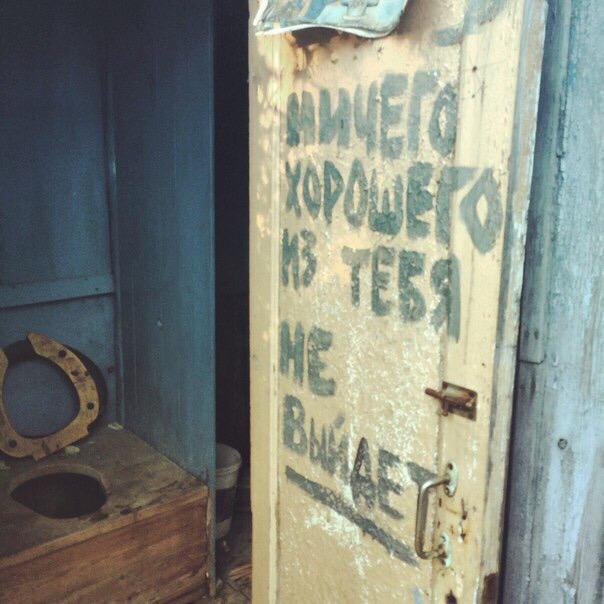 НИЧЕГО
ХОРОШЕГО
ИЗ ТЕБЯ
НЕ
ВЫЙДЕТ